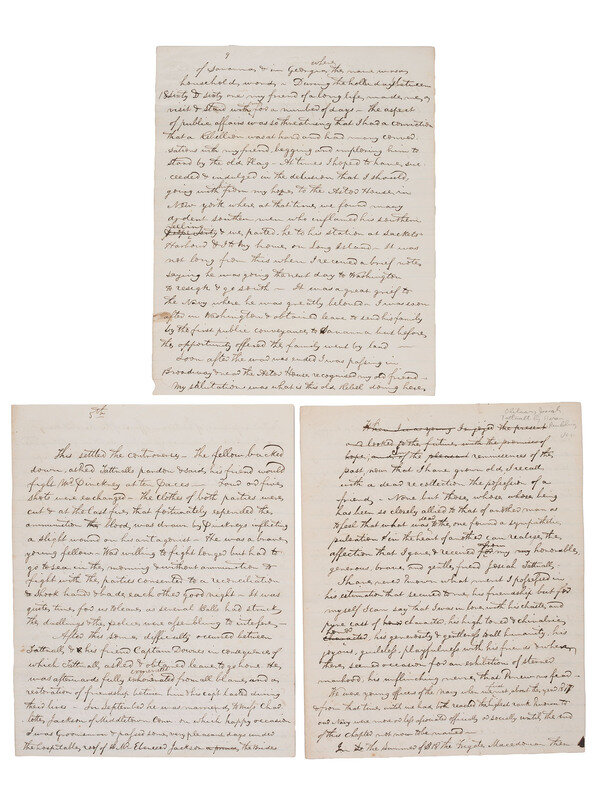 9
of Savanna, & in Georgia, where the name was a
household word. – During the holidays between
sixty & sixty one my friend of a long life, made me, a
visit & staid with for a number of days – the aspect
of public affairs was so threatning that I had a conviction
that a Rebellion was at hand and had many conver
sations with my friend, begging and imploring him to
stand by the old Flag – At times I hoped to have suc
ceeded & indulged in the delusion that I should,
going with from my hope, to the Astor House in
New York where at that time, we found many
ardent southern men who enflamed his southern
feeling & we parted, he to his station at Sackets
Harbour & I to my home, on Long Island – It was
not long from this when I received a brief note,
saying he was going the next day to Washington
to resign & go south – It was a great grief to
the Navy where he was greatly beloved. I was soon
after in Washington & obtained leave to send his family
by the first public conveyance to Savanna but before,
the opportunity offered the family went by land –
Soon after the war was ended I was passing in
Broadway near the Astor House recognised my old friend –
My salutation was what is this old Rebel doing here,
5th
This settled the controversy – The fellow backed
down, asked Tattnalls pardon & said, his friend would
fight Mr Pinckney at ten paces – Four or five
shots were exchanged – the clothes of both parties were
cut & at the last fire, that fortunately expended the
ammunition blood, was drawn by Pinckneys inflicting
a slight wound on his antagonist – He was a brave
young fellow – Was willing to fight longer but had to
go to sea in the morning & without ammunition to
fight with the parties consented to a reconciliation
& shook hands & bade each other good night – It was
quite, time for us to leave, as several Balls had struck
the dwellings & the police were assembling to interfere –
After this some, difficulty occurred between
Tattnall & his friend Captain Downes in consequence of
which Tattnall asked & obtained leave to go home. He
was afterwards fully exonerated from all blame, and a
restoration of friendship between him & his capt lasted during
their lives – In September he was married, to Miss Char
lotte, Jackson of Middletown Conn on which happy occasion
I was Groomsman & passed some, very pleasant days under
the hospitable, roof of Mr Ebenezer Jackson the Brides
Obituary Josiah
Tattnall by
When I was young I enjoyed the present
and looked to the future, with the promises of
hope, and of the pleasant reminiscences of the
past, now that I have grown old, I recall
with a dead recollection the possession of a
friend, – None but those, whose whose being
has been so closely allied to that of another man as
to feel that what was dear to the one found a sympathetic
pulsation in the heart of another can realize, the
affection that I gave & received from my honorable,
generous, brave, and gentle, friend Josiah Tattnall –
I have, never known what merit I possessed in
his estimation that secured to me his friendship but for
myself I can say that I was in love with his chaste, and
pure, character, his high toned & chivalric
honor, his generosity & gentleness to all humanity, his
joyous, guileless, playfulness with his friends & when
there, seemed occasion for an exhibition of sterner
manhood, his unflinching nerve, that knew no fear –
We were young officers of the navy when intimacy about the year 1817
& from that time, until we had both reached the highest rank known to
our Navy were never long separated officially or socially until, the end
of this chapter not now to be named –
In the summer of 1818 the Frigate, Macedonian then